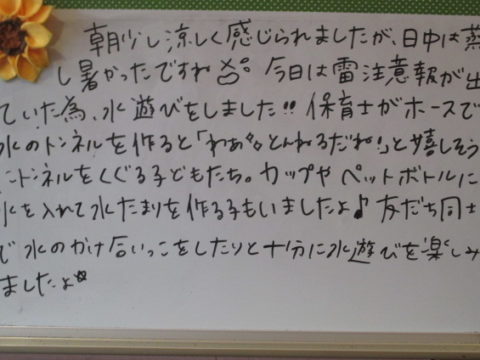 朝少し涼しく感じられましたが、日中は蒸
し暑かったですね。今日は雷注意報が出
ていた為、水遊びをしました!!保育士がホースで
水のトンネルを作ると「わぁ〜とんねるだね!」と嬉しそう
にトンネルをくぐる子どもたち。カップやペットボトルに
水を入れて水たまりを作る子もいましたよ♪友だち同士
で水のかけ合いっこをしたりと十分に水遊びを楽しみ
ましたよ☆